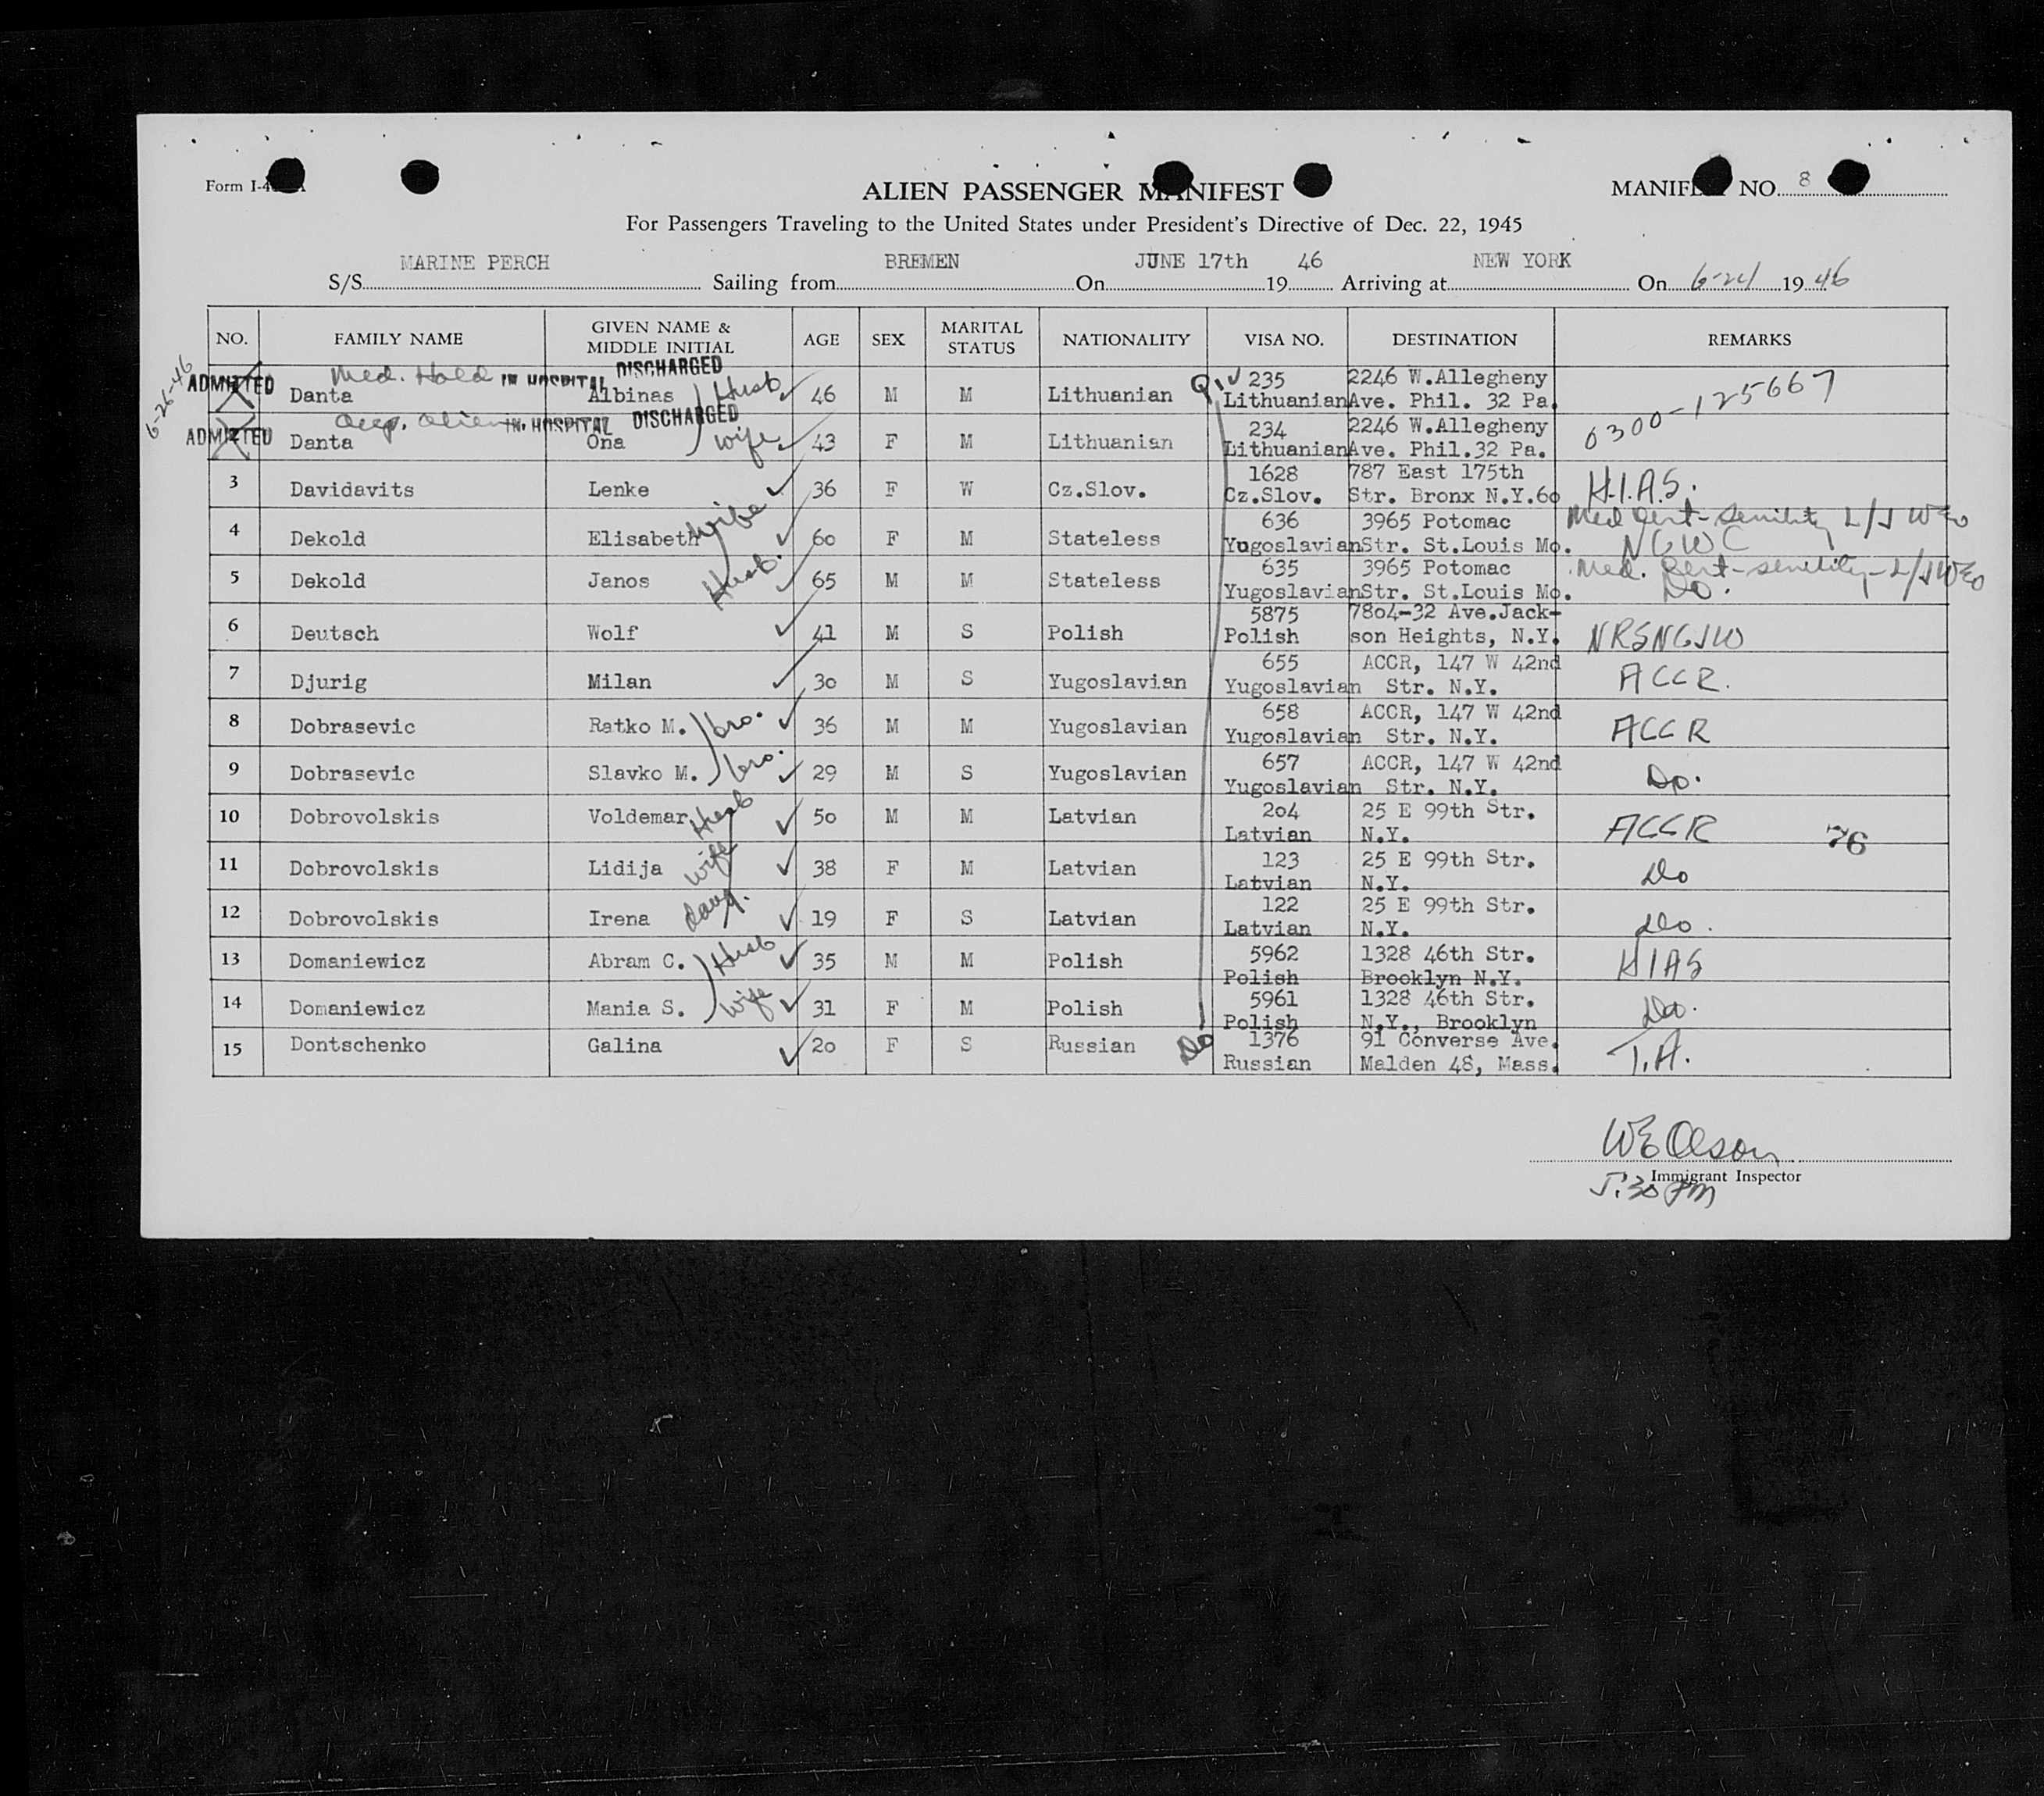 Form I-4
ALIEN PASSENGER MANIFEST
MANIFEST NO. 8
For Passengers Traveling to the United States under President's Directive of Dec. 22, 1945
S/S MARINE PERCH Sailing from BREMEN On JUNE 17th 19 46 Arriving at NEW YORK On 6-24 19 46
NO. FAMILY NAME GIVEN NAME & MIDDLE INITIAL AGE SEX MARITAL STATUS NATIONALITY VISA NO. DESTINATION REMARKS
6-26-46
ADMITTED Med. Hold IN HOSPITAL DISCHARGED
Danta Albinas Husb 46 M M Lithuanian 235 2246 W.Allegheny
Lithuanian Ave. Phil. 32 Pa. 0300-125667
ADMITTED Accp. alien IN HOSPITAL DISCHARGED
Danta Ona wife 43 F M Lithuanian 234 2246 W.Allegheny
Lithuanian Ave. Phil.32 Pa.
3 Davidavits Lenke 36 F W Cz.Slov. 1628 787 East 175th
Cz.Slov. Str. Bronx N.Y.60 H.I.A.S.
4 Dekold Elisabeth wife 60 F M Stateless 636 3965 Potomac Med Cert - senility
Yugoslavian Str. St.Louis Mo. NCWC
5 Dekold Janos Husb. 65 M M Stateless 635 3965 Potomac Med. Cert - senility
Yugoslavian Str. St.Louis Mo. Do.
6 Deutsch Wolf 41 M S Polish 5875 7804-32 Ave.Jack-
Polish son Heights, N.Y. NRSNGJW
7 Djurig Milan 30 M S Yugoslavian 655 ACCR, 147 W 42nd
Yugoslavian Str. N.Y. ACCR.
8 Dobrasevic Ratko M. bro. 36 M M Yugoslavian 658 ACCR, 147 W 42nd
Yugoslavian Str. N.Y. ACCR
9 Dobrasevic Slavko M. bro. 29 M S Yugoslavian 657 ACCR, 147 W 42nd
Yugoslavian Str. N.Y. Do.
10 Dobrovolskis Voldemar Husb 50 M M Latvian 204 25 E 99th Str.
Latvian N.Y. ACCR 76
11 Dobrovolskis Lidija wife 38 F M Latvian 123 25 E 99th Str.
Latvian N.Y. Do
12 Dobrovolskis Irena daug. 19 F S Latvian 122 25 E 99th Str.
Latvian N.Y. Do.
13 Domaniewicz Abram C. Husb 35 M M Polish 5962 1328 46th Str.
Polish Brooklyn N.Y. HIAS
14 Domaniewicz Mania S. wife 31 F M Polish 5961 1328 46th Str.
Polish N.Y., Brooklyn Do.
15 Dontschenko Galina 20 F S Russian Do 1376 91 Converse Ave.
Russian Malden 48, Mass. T.A.
WE Olson
Immigrant Inspector
5:30 PM